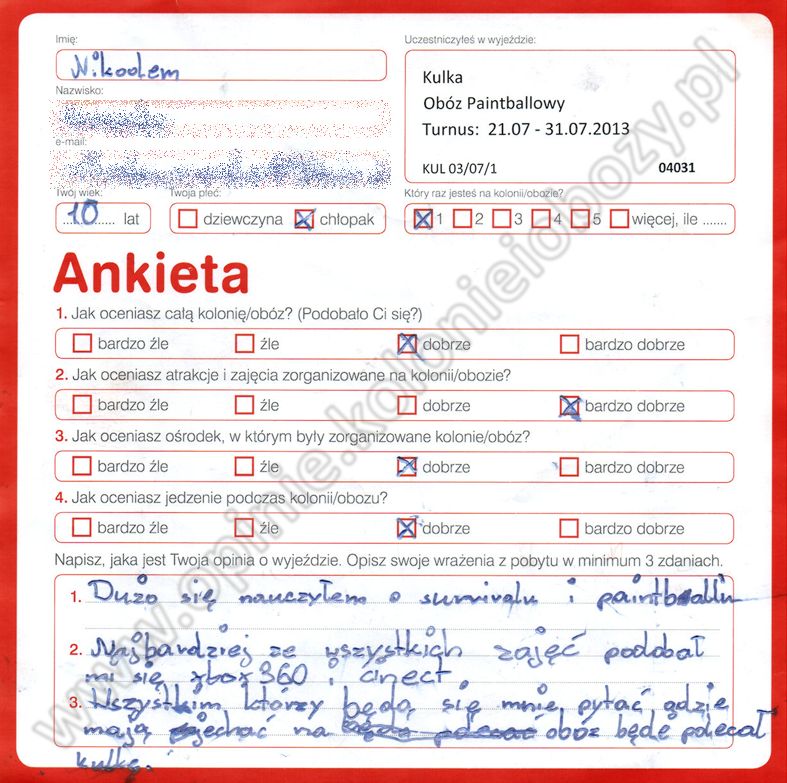 Imię:
Nikodem
Nazwisko:
e-mail:
Uczestniczyłeś w wyjeździe:
Kulka
Obóz Paintballowy
Turnus: 21.07 - 31.07.2013
KUL 03/07/1 04031
Twój wiek:
10 lat
Twoja płeć:
dziewczyna chłopak
Który raz jesteś na kolonii/obozie?
1 2 3 4 5 więcej, ile .......
Ankieta
1. Jak oceniasz całą kolonię/obóz? (Podobało Ci się?)
bardzo źle źle dobrze bardzo dobrze
2. Jak oceniasz atrakcje i zajęcia zorganizowane na kolonii/obozie?
bardzo źle źle dobrze bardzo dobrze
3. Jak oceniasz ośrodek, w którym były zorganizowane kolonie/obóz?
bardzo źle źle dobrze bardzo dobrze
4. Jak oceniasz jedzenie podczas kolonii/obozu?
bardzo źle źle dobrze bardzo dobrze
Napisz, jaka jest Twoja opinia o wyjeździe. Opisz swoje wrażenia z pobytu w minimum 3 zdaniach.
1. Dużo się nauczyłem o survivalu i paintballu
2. Najbardziej ze wszystkich zajęć podobał
mi się xbox 360 i cinect.
3. Wszystkim którzy będą się mnie pytać gdzie
mają jechać na obóz będę polecał
kulkę.
www.opinie.kolonieiobozy.pl